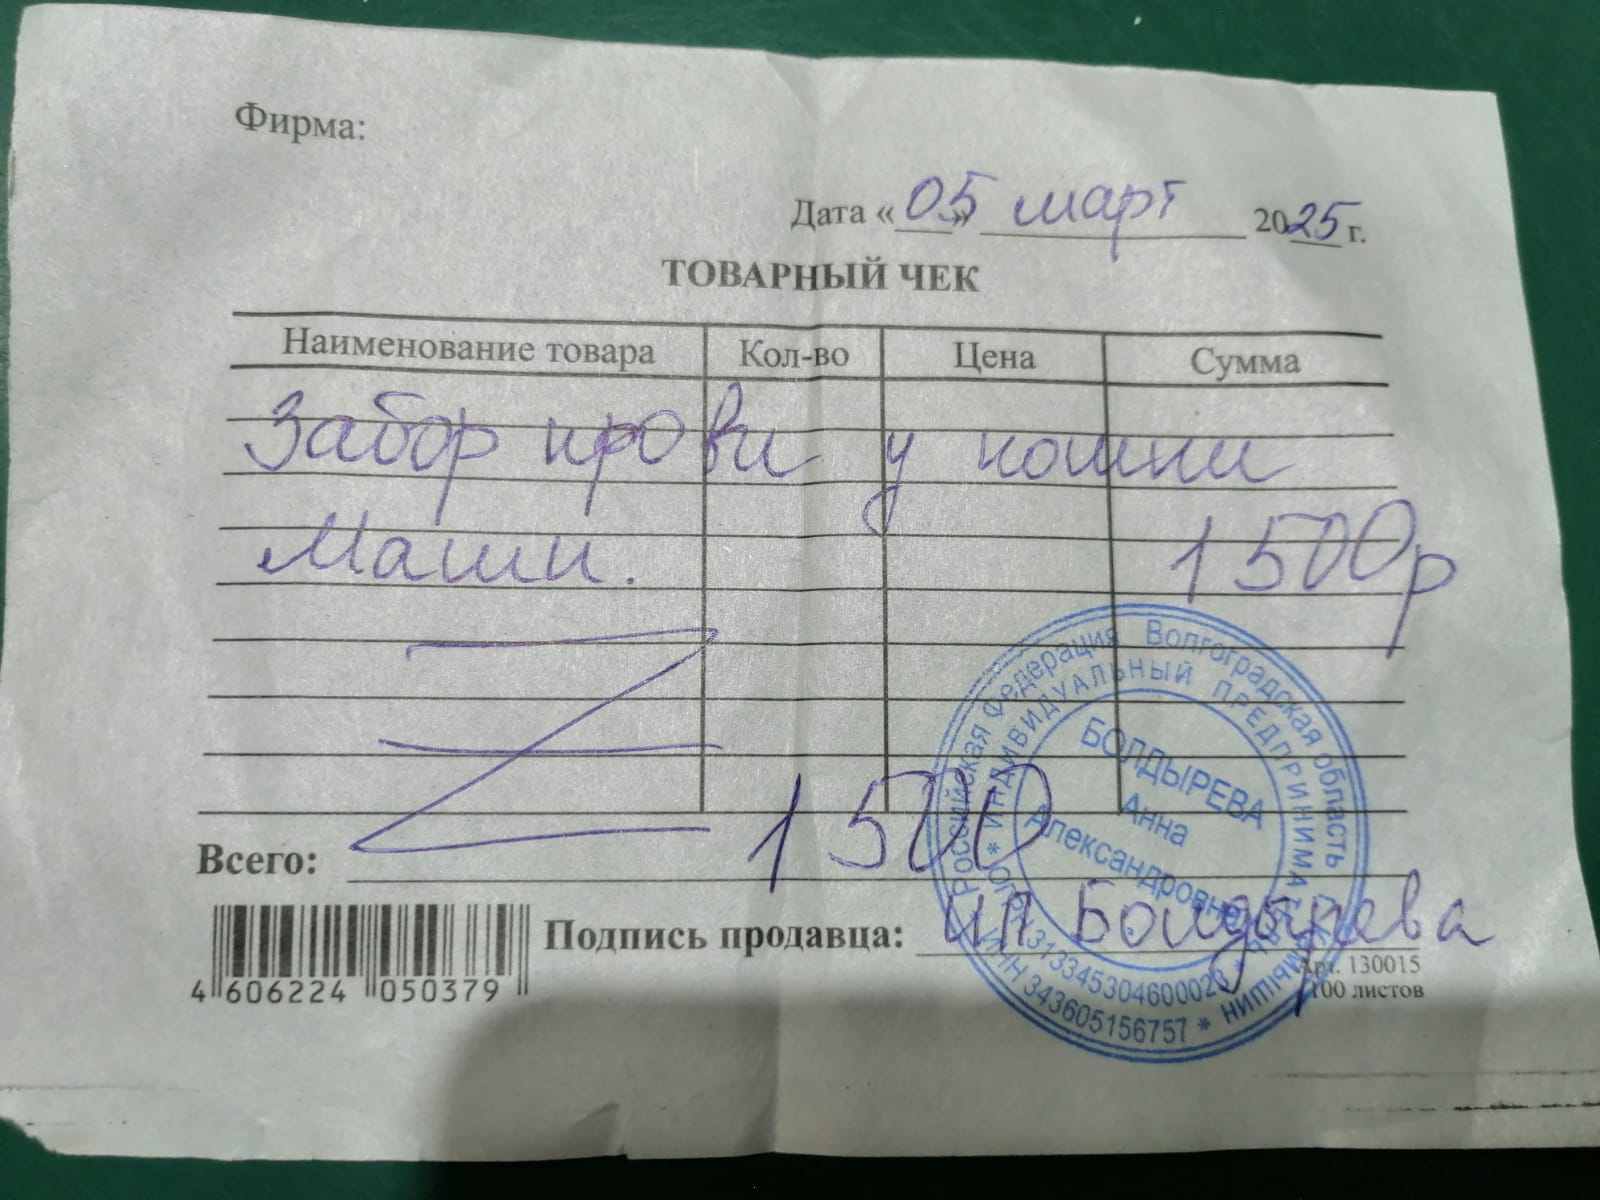 Фирма:
Дата «05» март 2025 г.
ТОВАРНЫЙ ЧЕК
Наименование товара Кол-во Цена Сумма
Забор крови у кошки
Маши. 1500р
Всего: 1500
Подпись продавца: ип Болдырева
4 606224 050379
Арт. 130015
100 листов
Российская Федерация Волгоградская область
ИНДИВИДУАЛЬНЫЙ ПРЕДПРИНИМАТЕЛЬ
БОЛДЫРЕВА
Анна
Александровна
ИНН 343605156757